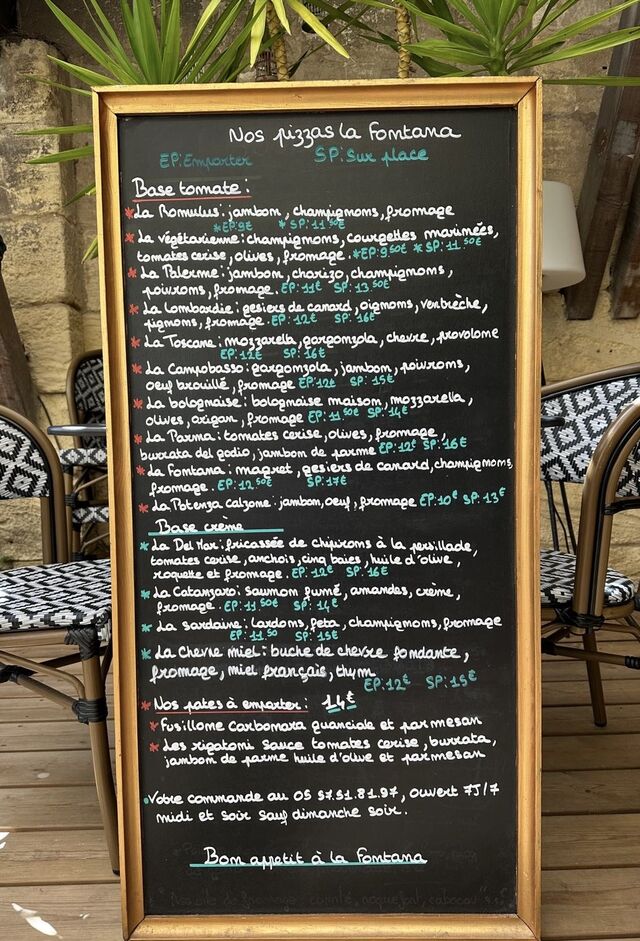 Nos pizzas la Fontana
EP:Emporter SP:Sur place
Base tomate:
*La Romulus: jambon, champignons, fromage
*EP:9€ *SP:11.50€
*La végétarienne: champignons, courgettes marinées,
tomates cerise, olives, fromage. *EP:9.50€ *SP:11.50€
*La Palerme: jambon, chorizo, champignons,
poivrons, fromage. EP:11€ SP:13.50€
*La Lombardie: gesiers de canard, oignons, ventrèche,
pignons, fromage. EP:12€ SP:16€
*La Toscane: mozzarella, gorgonzola, chevre, provolone
EP:12€ SP:16€
*La Campobasso: gorgonzola, jambon, poivrons,
oeuf brouillé, fromage EP:12€ SP:15€
*La bolognaise: bolognaise maison, mozzarella,
olives, origan, fromage EP:11.50€ SP:14€
*La Parma: tomates cerise, olives, fromage,
burrata del godio, jambon de parme EP:12€ SP:16€
*La Fontana: magret, gesiers de canard, champignons,
fromage. EP:12.50€ SP:17€
*La Potenza Calzone: jambon, oeuf, fromage EP:10€ SP:13€
Base crème
*La Del Mar: fricassée de chipirons à la persillade,
tomates cerise, anchois, cinq baies, huile d'olive,
roquette et fromage. EP:12€ SP:16€
*La Catanzaro: saumon fumé, amandes, crème,
fromage. EP:11.50€ SP:14€
*La sardaine: lardons, feta, champignons, fromage
EP:11.50 SP:15€
*La Chevre miel: buche de chevre fondante,
fromage, miel français, thym
EP:12€ SP:15€
*Nos pates à emporter: 14€
*Fusillone Carbonara guanciale et parmesan
*Les rigatoni sauce tomates cerise, burrata,
jambon de parme huile d'olive et parmesan
•Votre commande au 05 57.51.81.97, ouvert 7J/7
midi et soir sauf dimanche soir.
Bon appetit à la Fontana